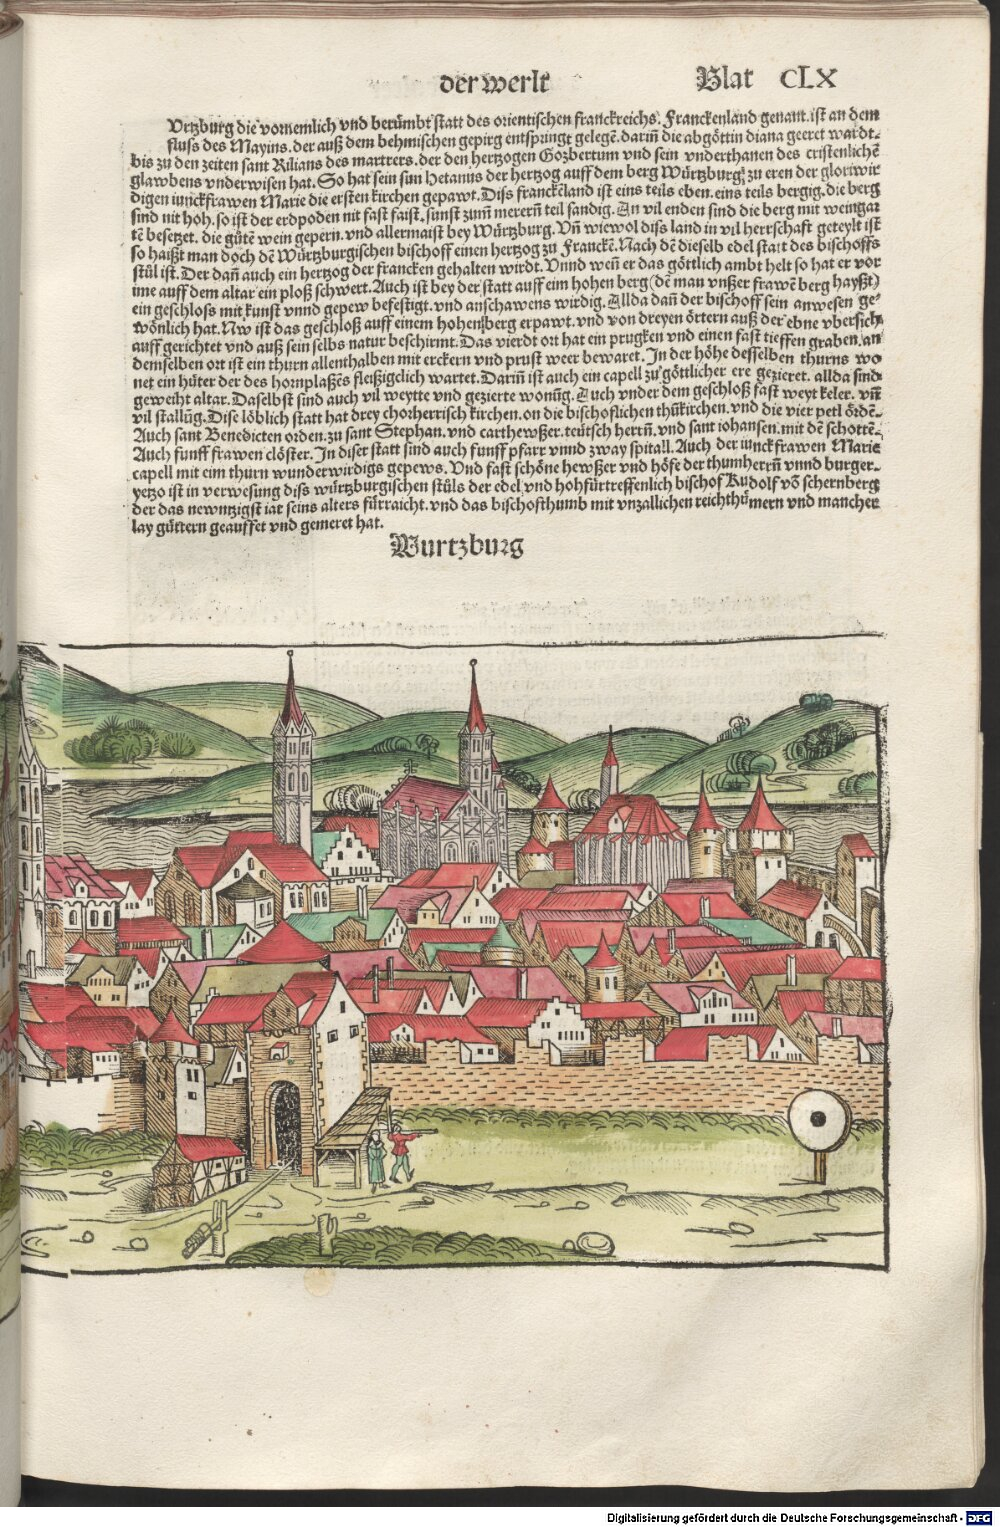 der werlt
Blat CLX
Vrtzburg die vornemlich vnd berümbt statt des orientischen franckreichs. Franckenland genant. ist an dem
fluss des Mayins. der auß dem behmischen gepirg entspringt gelegē. dariñ die abgöttin diana geeret wardt.
bis zu den zeiten sant Kilians des martrers. der den hertzogen Gozbertum vnd sein vnderthanen des cristenlichē
glawbens vnderwisen hat. So hat sein sun Hetanus der hertzog auff dem berg Würtzburg zu eren der gloriwir
digen iunckfrawen Marie die ersten kirchen gepawt. Diss franckēland ist eins teils eben. eins teils bergig. die berg
sind nit hoh. so ist der erdpoden nit fast faist. sunst zum merern teil sandig. An vil enden sind die berg mit weingar
tē besetzet. die gůtē wein gepern. vnd allermaist bey Würtzburg. Vñ wiewol diss land in vil herrschaft geteylt ist
so haißt man doch dē Würtzburgischen bischoff einen hertzog zu Franckē. Nach dē dieselb edel statt des bischoffs
stůl ist. Der dañ auch ein hertzog der francken gehalten wirdt. Vnnd weñ er das göttlich ambt helt so hat er vor
ime auff dem altar ein ploß schwert. Auch ist bey der statt auff eim hohen berg (dē man vnßer frawē berg hayßt)
ein geschloss mit kunst vnnd gepew befestigt. vnd anschawens wirdig. Allda dañ der bischoff sein anwesen ge-
wönlich hat. Nw ist das geschloß auff einem hohen berg erpawt. vnd von dreyen örtern auß der ebne vbersich
auff gerichtet vnd auß sein selbs natur beschirmt. Das vierdt ort hat ein prugken vnd einen fast tieffen graben. an
demselben ort ist ein thurn allenthalben mit erckern vnd prust weer bewaret. In der höhe desselben thurns wo
net ein hüter der des hornplaßes fleißigclich wartet. Dariñ ist auch ein capell zu göttlicher ere gezieret. allda sind
geweiht altar. Daselbst sind auch vil weytte vnd gezierte wonūg. Auch vnder dem geschloß fast weyt keler. vñ
vil stallūg. Dise löblich statt hat drey chorherrisch kirchen. on die bischoflichen thūkirchen. vnd die vier petl ördē.
Auch sant Benedicten orden. zu sant Stephan. vnd carthewßer. teütsch herrñ. vnd sant iohansen. mit dē schottē.
Auch funff frawen clöster. In diser statt sind auch funff pfarr vnnd zway spitall. Auch der iunckfrawen Marie
capell mit eim thurn wunderwirdigs gepews. Vnd fast schöne hewßer vnd höfe der thumherrñ vnnd burger.
yetzo ist in verwesung diss würtzburgischen stůls der edel vnd hohfürtreffenlich bischof Rudolf võ schernberg
der das newntzigst iar seins alters fürraicht. vnd das bischofthumb mit vnzallichen reichthümern vnd mancher
lay güttern geauffet vnd gemeret hat.
Wurtzburg
Digitalisierung gefördert durch die Deutsche Forschungsgemeinschaft - DFG